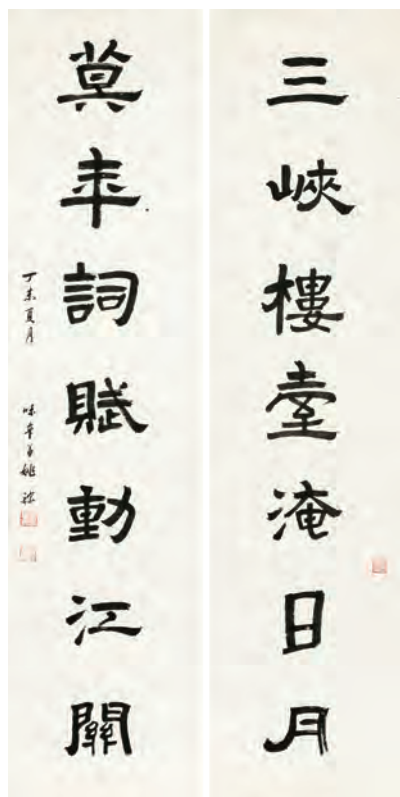 三峽樓臺淹日月
莫年詞賦動江關
丁未夏月 味辛弟姚琮